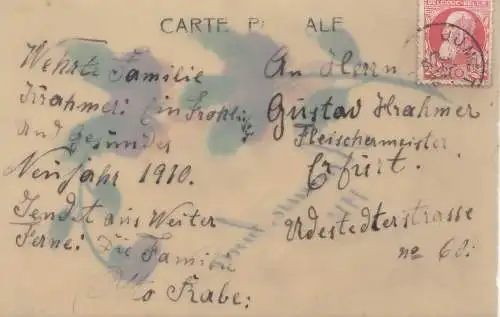 CARTE P ALE
BELGIQUE-BELGIE
Wehrte Familie
Krahmer: Ein Frohlig
und gesundes
Neujahr 1910.
Sendet aus Weiter
Ferne: Die Familie
Otto Rabe:
An Herrn
Gustav Krahmer
Fleischermeister
Erfurt.
Udestedterstrasse
no 60: